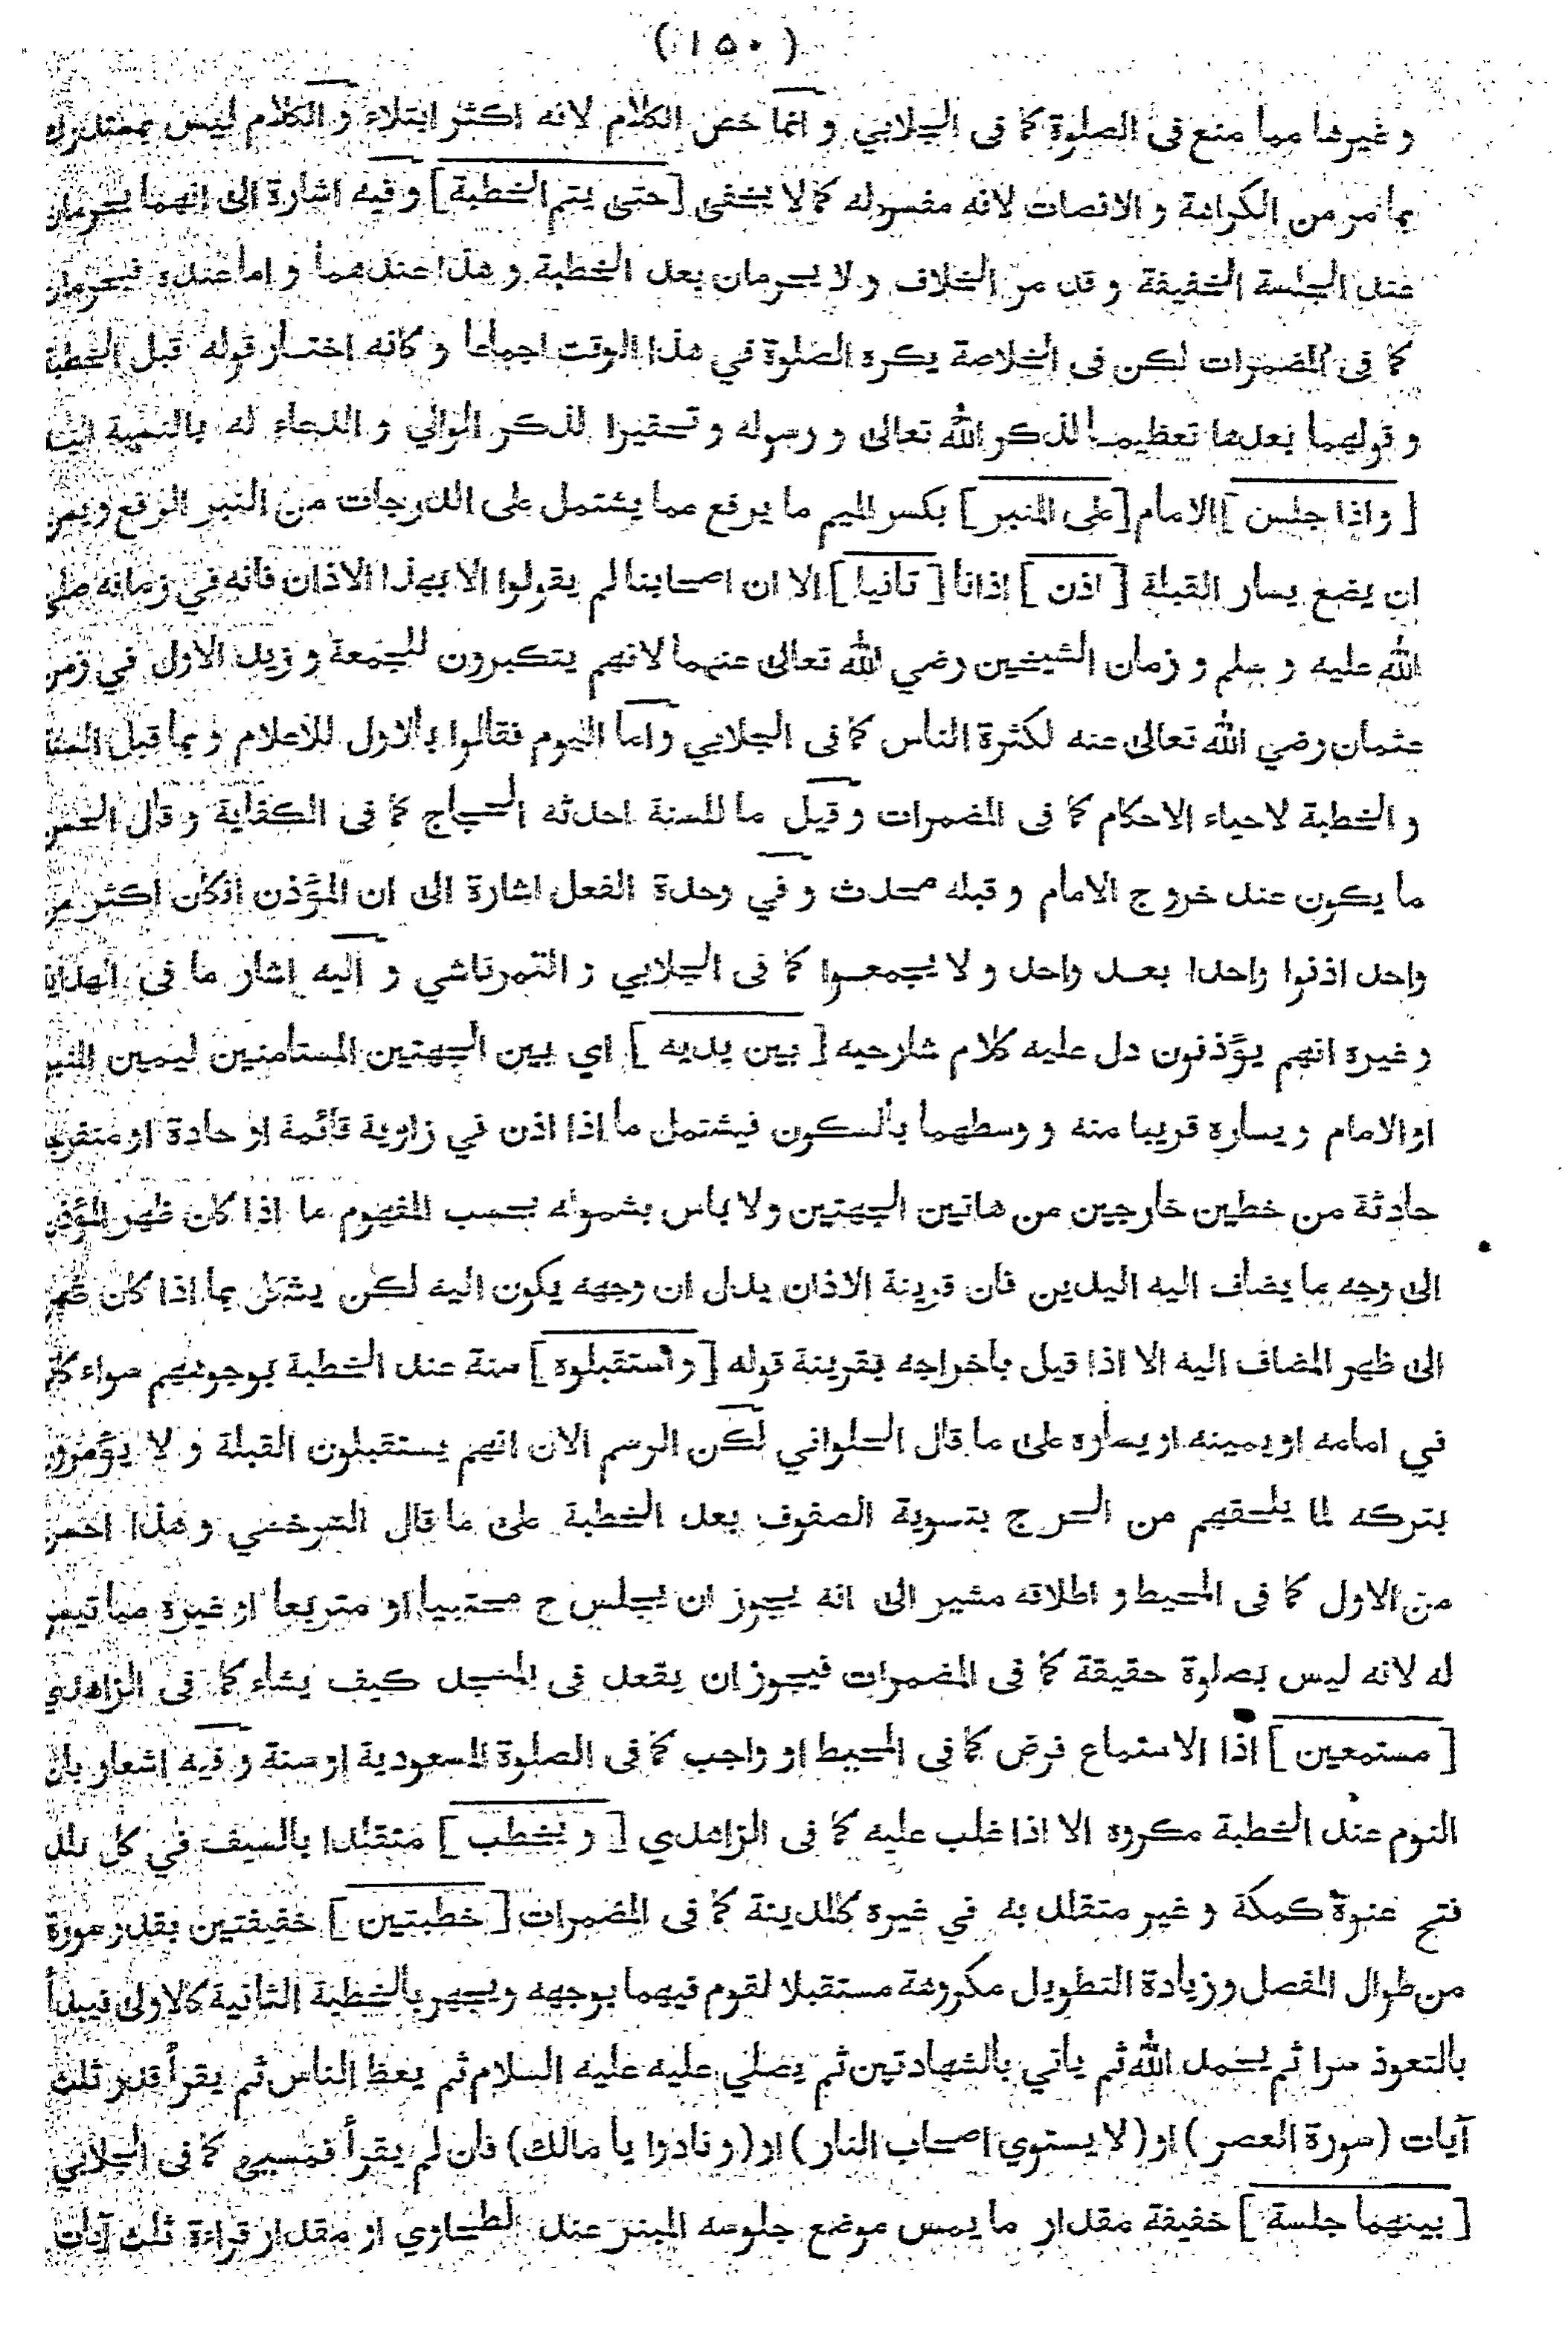 (١٥٠)
وغيرها مما منع فى الصلوة كما فى الجلابي و انما خص الكلام لانه اكثر ابتلاء و الكلام ليس بمستدرك
بما مر من الكراهة و الانصات لانه مفسر له كما لا يخفى [حتى يتم الخطبة] وفيه اشارة الى انهما يحرمان
عند الجلسة الخفيفة و قد مر الخلاف و لا يحرمان بعد الخطبة و هذا عندهما و اما عنده فيحرمان
كما فى المضمرات لكن فى الخلاصة يكره الصلوة في هذا الوقت اجماعا و كانه اختار قوله قبل الخطبة
و قولهما بعدها تعظيما لذكر الله تعالى و رسوله و تحقيرا لذكر الوالي و الدعاء له بالنسبة اليه
[ واذا جلس ] الامام [على المنبر] بكسر الميم ما يرفع مما يشتمل على الدرجات من النبر الرفع ويسن
ان يضع يسار القبلة [ اذن ] اذانا [ ثانيا ] الا ان اصحابنا لم يقولوا الا بهذا الاذان فانه في زمانه صلى
الله عليه و سلم و زمان الشيخين رضي الله تعالى عنهما لانهم يتكبرون للجمعة و زيد الاول في زمن
عثمان رضي الله تعالى عنه لكثرة الناس كما فى الجلابي و اما اليوم فقالوا بالاول للاعلام و بما قبل السنة
و الخطبة لاحياء الاحكام كما فى المضمرات و قيل ما للسنة احدثه الحجاج كما فى الكفاية و قال الحسن
ما يكون عند خروج الامام و قبله محدث و في وحدة الفعل اشارة الى ان المؤذن اذ كان اكثر من
واحد اذنوا واحدا بعد واحد و لا يجمعوا كما فى الجلابي و التمرتاشي و اليه اشار ما فى الهداية
و غيره انهم يؤذنون دل عليه كلام شارحيه [ بين يديه ] اي بين الجهتين المسامتين ليمين المنبر
او الامام و يساره قريبا منه و وسطهما بالسكون فيشتمل ما اذا اذن في زاوية قائمة او حادة او منفرجة
حادثة من خطين خارجين من هاتين الجهتين ولا باس بشموله بحسب المفهوم ما اذا كان ظهر المؤذن
الى وجه ما يضاف اليه اليدين فان قرينة الاذان يدل ان وجهه يكون اليه لكن يشكل بما اذا كان ظهره
الى ظهر المضاف اليه الا اذا قيل باخراجه بقرينة قوله [ و استقبلوه ] سنة عند الخطبة بوجوههم سواء كانوا
في امامه او يمينه او يساره على ما قال الحلواني لكن الرسم الان انهم يستقبلون القبلة و لا يؤمرون
بتركه لما يلحقهم من الحرج بتسوية الصفوف بعد الخطبة على ما قال السرخسي و هذا احسن
من الاول كما فى المحيط و اطلاقه مشير الى انه يجوز ان يجلس ح محتبيا او متربعا او غيره مما تيسر
له لانه ليس بصلوة حقيقة كما فى المضمرات فيجوز ان يقعد فى المسجد كيف يشاء كما فى الزاهدي
[ مستمعين ] اذا الاستماع فرض كما فى المحيط او واجب كما فى الصلوة المسعودية او سنة و فيه اشعار بان
النوم عند الخطبة مكروه الا اذا غلب عليه كما فى الزاهدي [ و يخطب ] متقلدا بالسيف في كل بلد
فتح عنوة كمكة و غير متقلد به في غيره كالمدينة كما فى المضمرات [ خطبتين ] خفيفتين بقدر سورة
من طوال المفصل و زيادة التطويل مكروهة مستقبلا لقوم فيهما بوجهه ويجهر بالخطبة الثانية كالاولى فيبدأ
بالتعوذ سرا ثم يحمد الله ثم ياتي بالشهادتين ثم يصلي عليه عليه السلام ثم يعظ الناس ثم يقرأ قدر ثلث
آيات (سورة العصر) او (لا يستوي اصحاب النار) او (و نادوا يا مالك) فان لم يقرأ فمسيئ كما فى الجلابي
[ بينهما جلسة ] خفيفة مقدار ما يمس موضع جلوسه المبنر عند الطحاوي او مقدار قراءة ثلث آيات